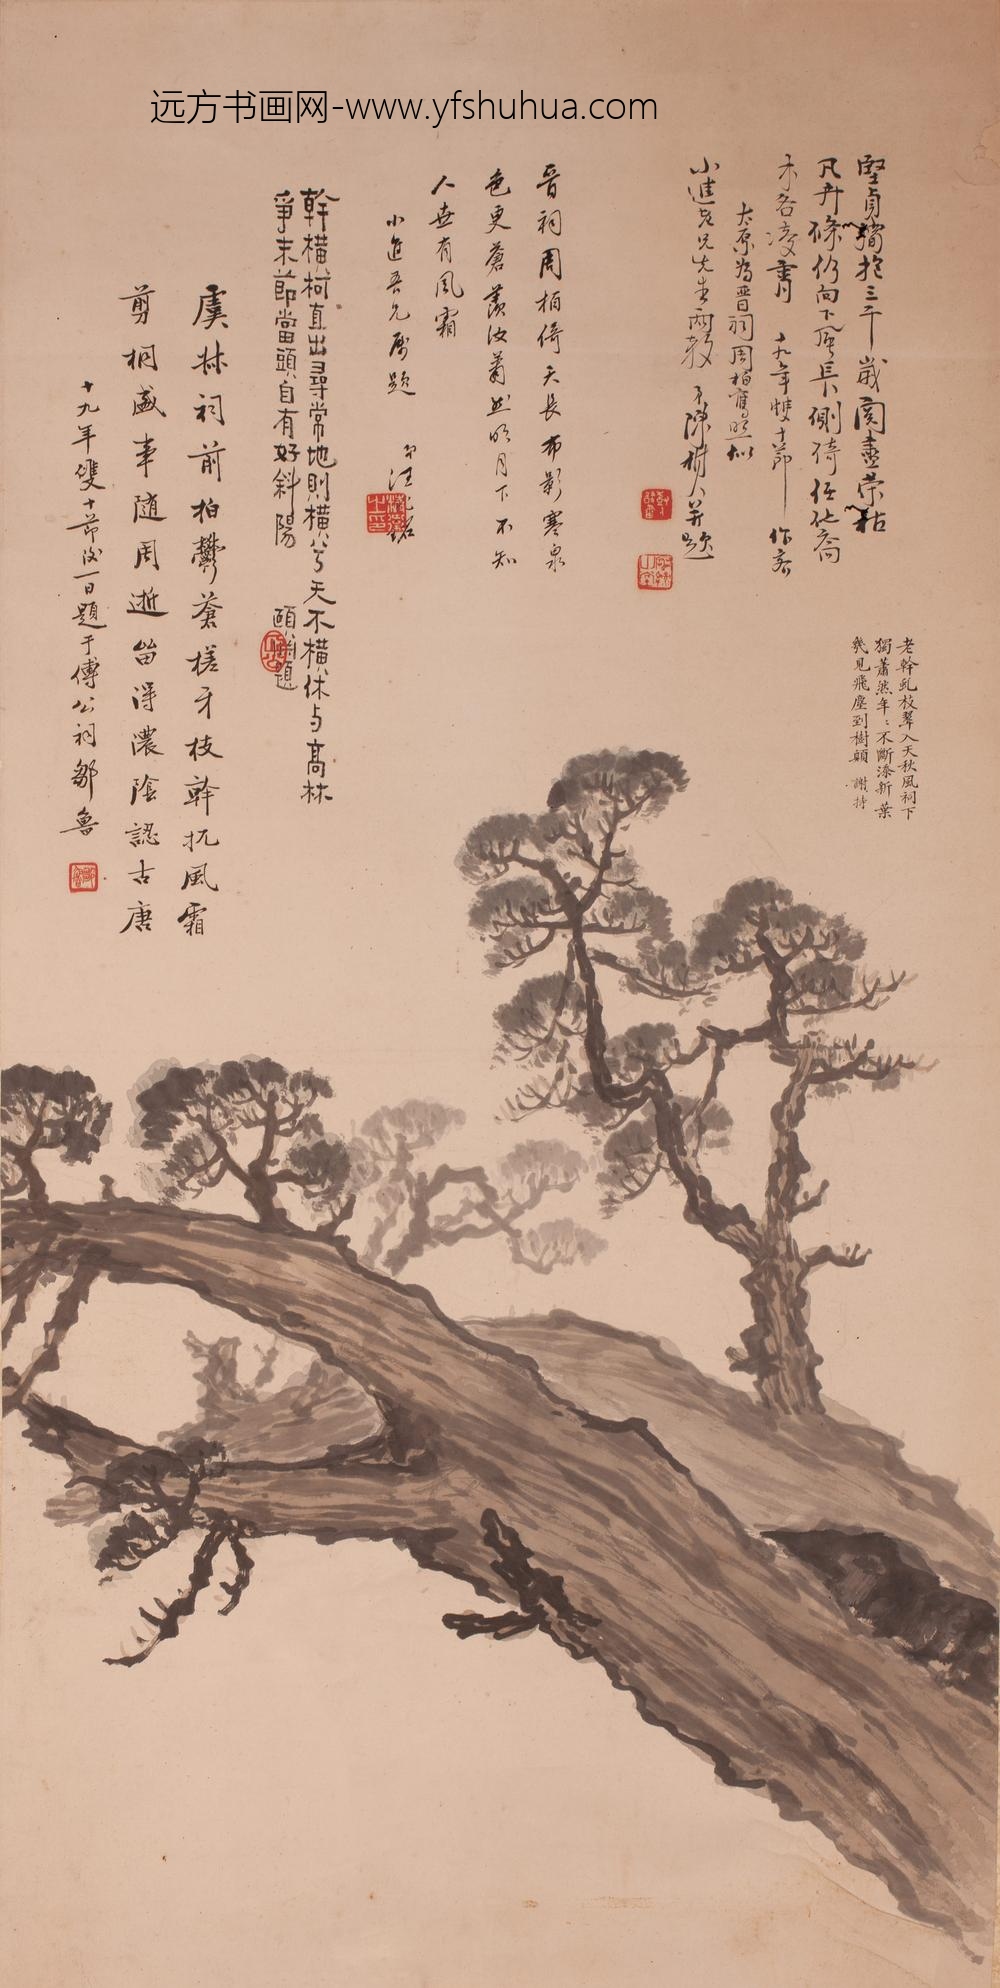 远方书画网-www.yfshuhua.com
堅貞獨抱三千歲閱盡榮枯
凡卉條仍向下風長側倚任他喬
木各凌霄 十九年雙十節作客
太原為晉祠周柏舊照似
小進老兄先生兩教 樹人并題
老幹虬枝翠入天秋風祠下
獨蕭然年〻不斷添新葉
幾見飛塵到樹顛 謝持
晉祠周柏倚天長布影寒泉
色更蒼羨汝蕭然明月下不知
人世有風霜
小進吾兄屬題
幹橫柯直出尋常地則橫兮天不橫休与高林
爭末節當頭自有好斜陽 頤淵題
虞林祠前柏鬱蒼槎牙枝幹抗風霜
剪桐盛事隨周逝留得濃陰認古唐
十九年雙十節後一日題于傅公祠鄒魯